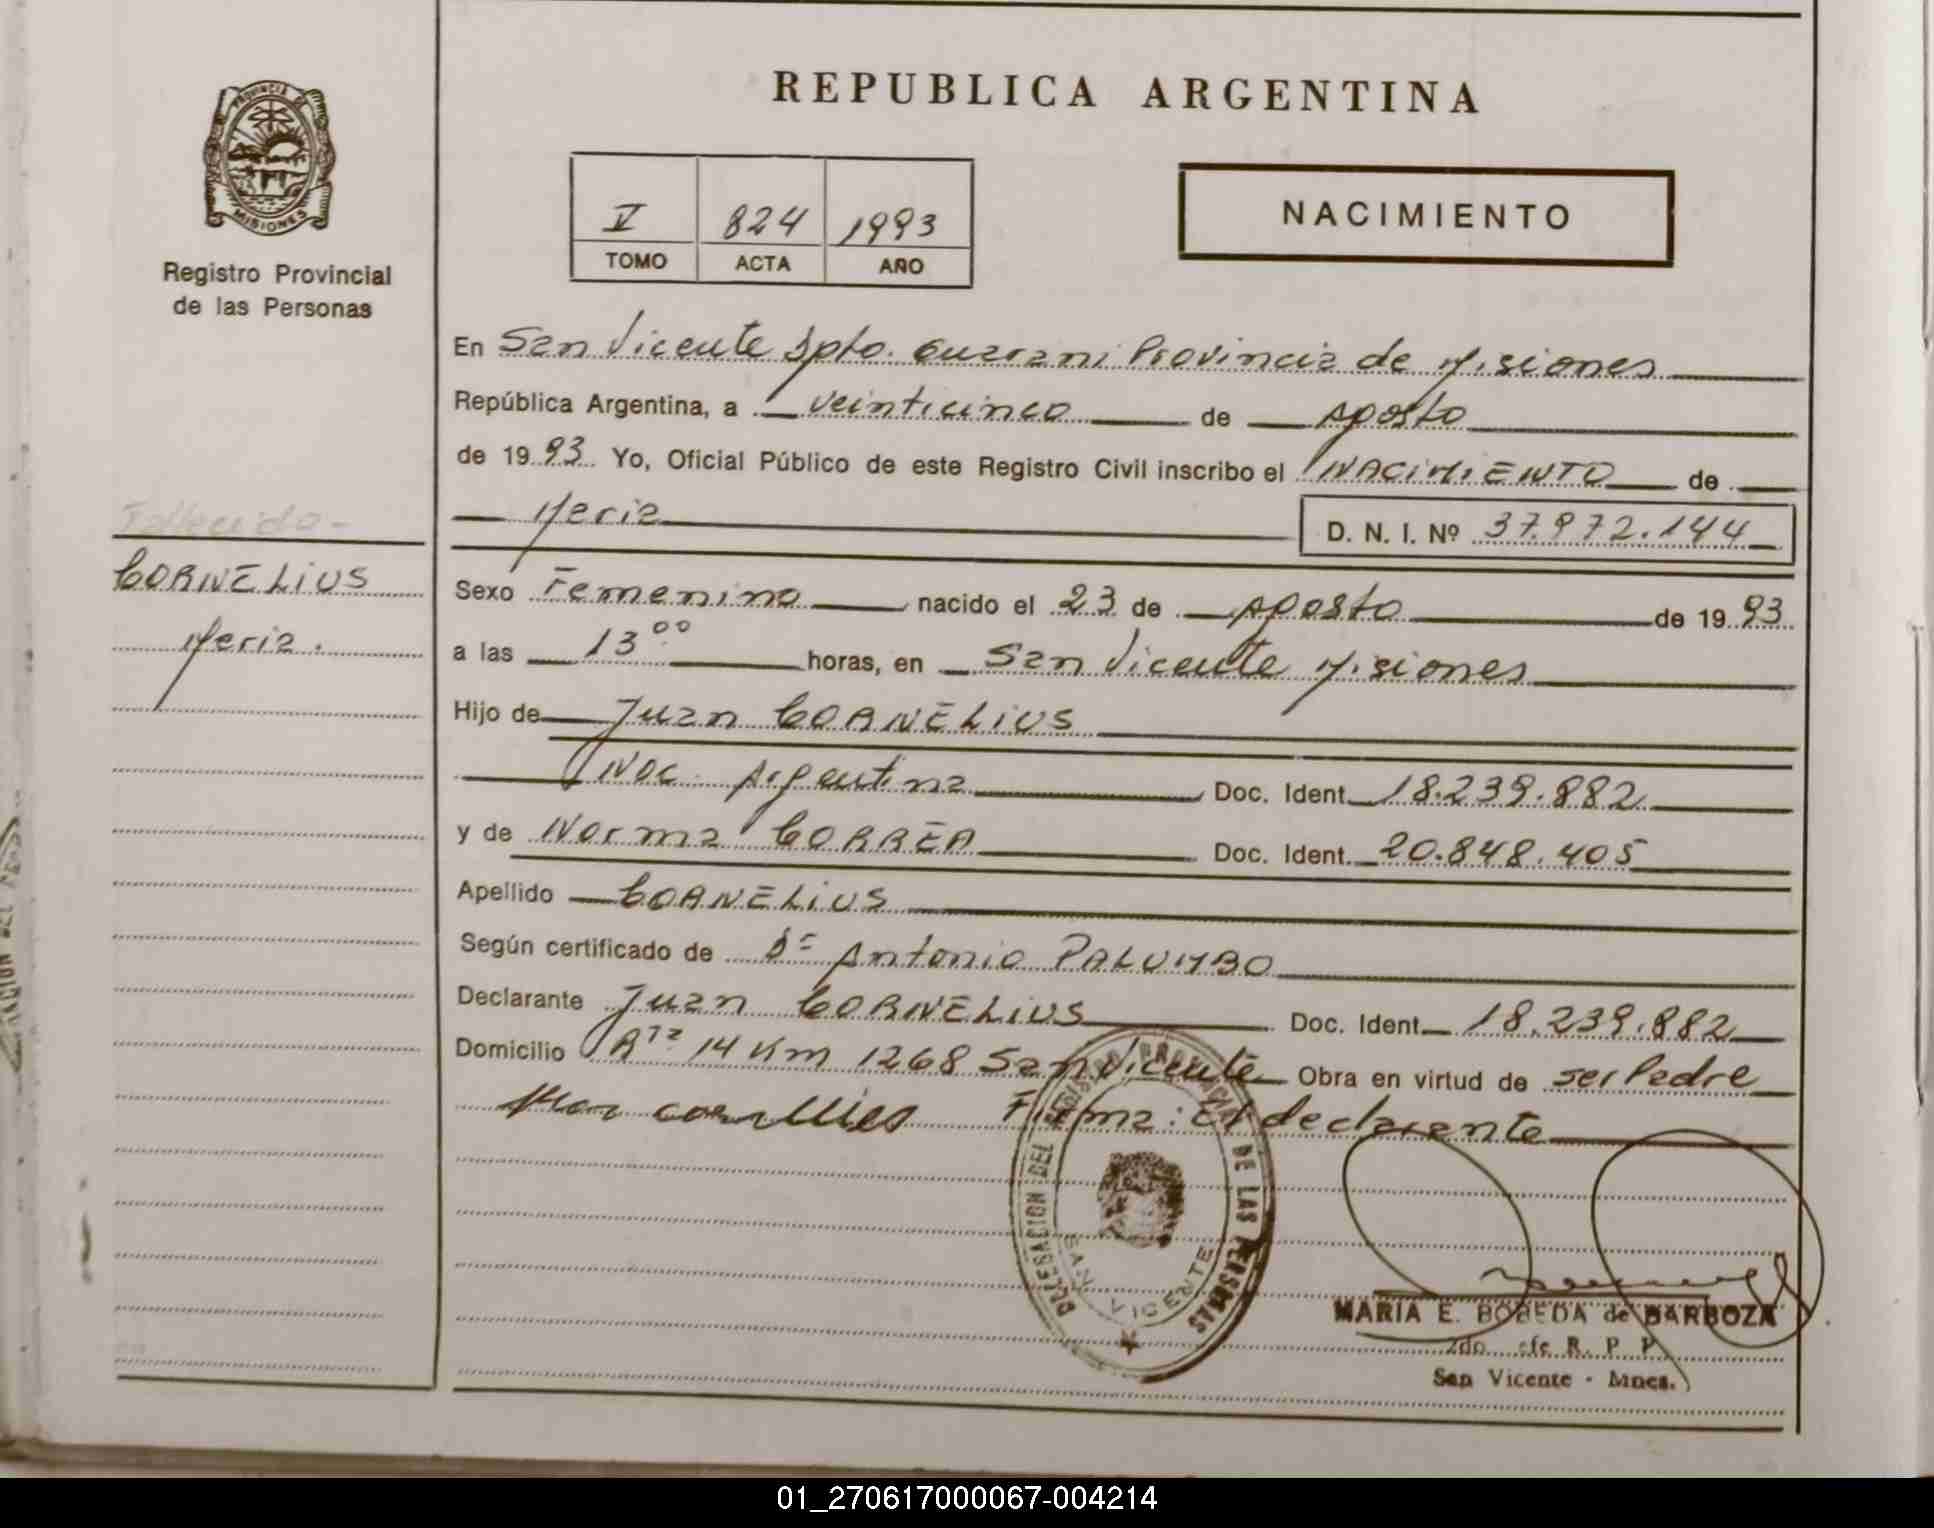 REPUBLICA ARGENTINA
PROVINCIA DE
MISIONES
Registro Provincial
de las Personas
V 824 1993
TOMO ACTA AÑO
NACIMIENTO
En San Vicente Dpto. Guarani Provincia de Misiones
República Argentina, a veinticinco de Agosto
de 1993 Yo, Oficial Público de este Registro Civil inscribo el NACIMIENTO de
Maria
D. N. I. Nº 37.972.144
Fallecida-
CORNELIUS
Maria.
Sexo Femenino nacido el 23 de Agosto de 1993
a las 13 00 horas, en San Vicente Misiones
Hijo de Juan CORNELIUS
Nac. Argentina Doc. Ident. 18.239.882
y de Norma CORREA Doc. Ident. 20.848.405
Apellido CORNELIUS
Según certificado de Dr Antonio PALUMBO
Declarante Juan CORNELIUS Doc. Ident. 18.239.882
Domicilio Rta 14 Km 1268 San Vicente Obra en virtud de ser Padre
Firma: El declarante
DELEGACION DEL REGISTRO PROVINCIAL DE LAS PERSONAS
SAN VICENTE
MARIA E. BOBEDA de BARBOZA
2do. Jefe R. P. P.
San Vicente - Mnes.
01_270617000067-004214